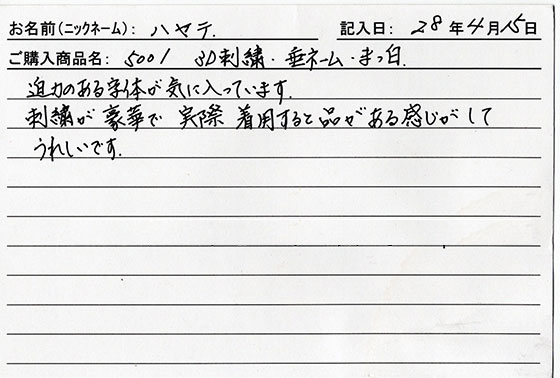 お名前(ニックネーム): ハヤテ. 記入日: 28年4月15日
ご購入商品名: 5001 3D刺繍・垂ネーム・まっ白.
迫力のある字体が気に入っています.
刺繍が豪華で 実際 着用すると品がある感じがして
うれしいです.